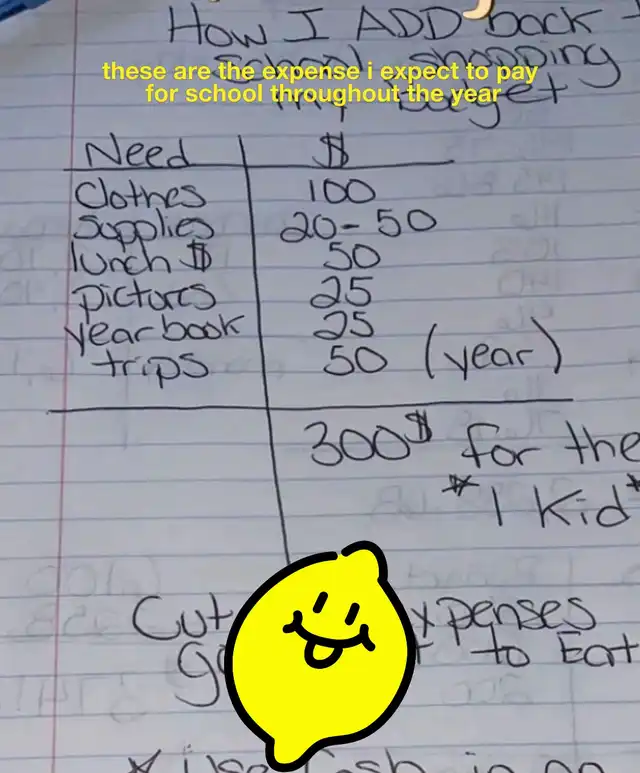 How I ADD back
School shopping
my budget
these are the expense i expect to pay
for school throughout the year
Need $
Clothes 100
Supplies 20-50
lunch $ 50
pictures 25
yearbook 25
trips 50 (year)
300$ for the
*1 Kid*
Cut expenses
to Eat
* Use Cash